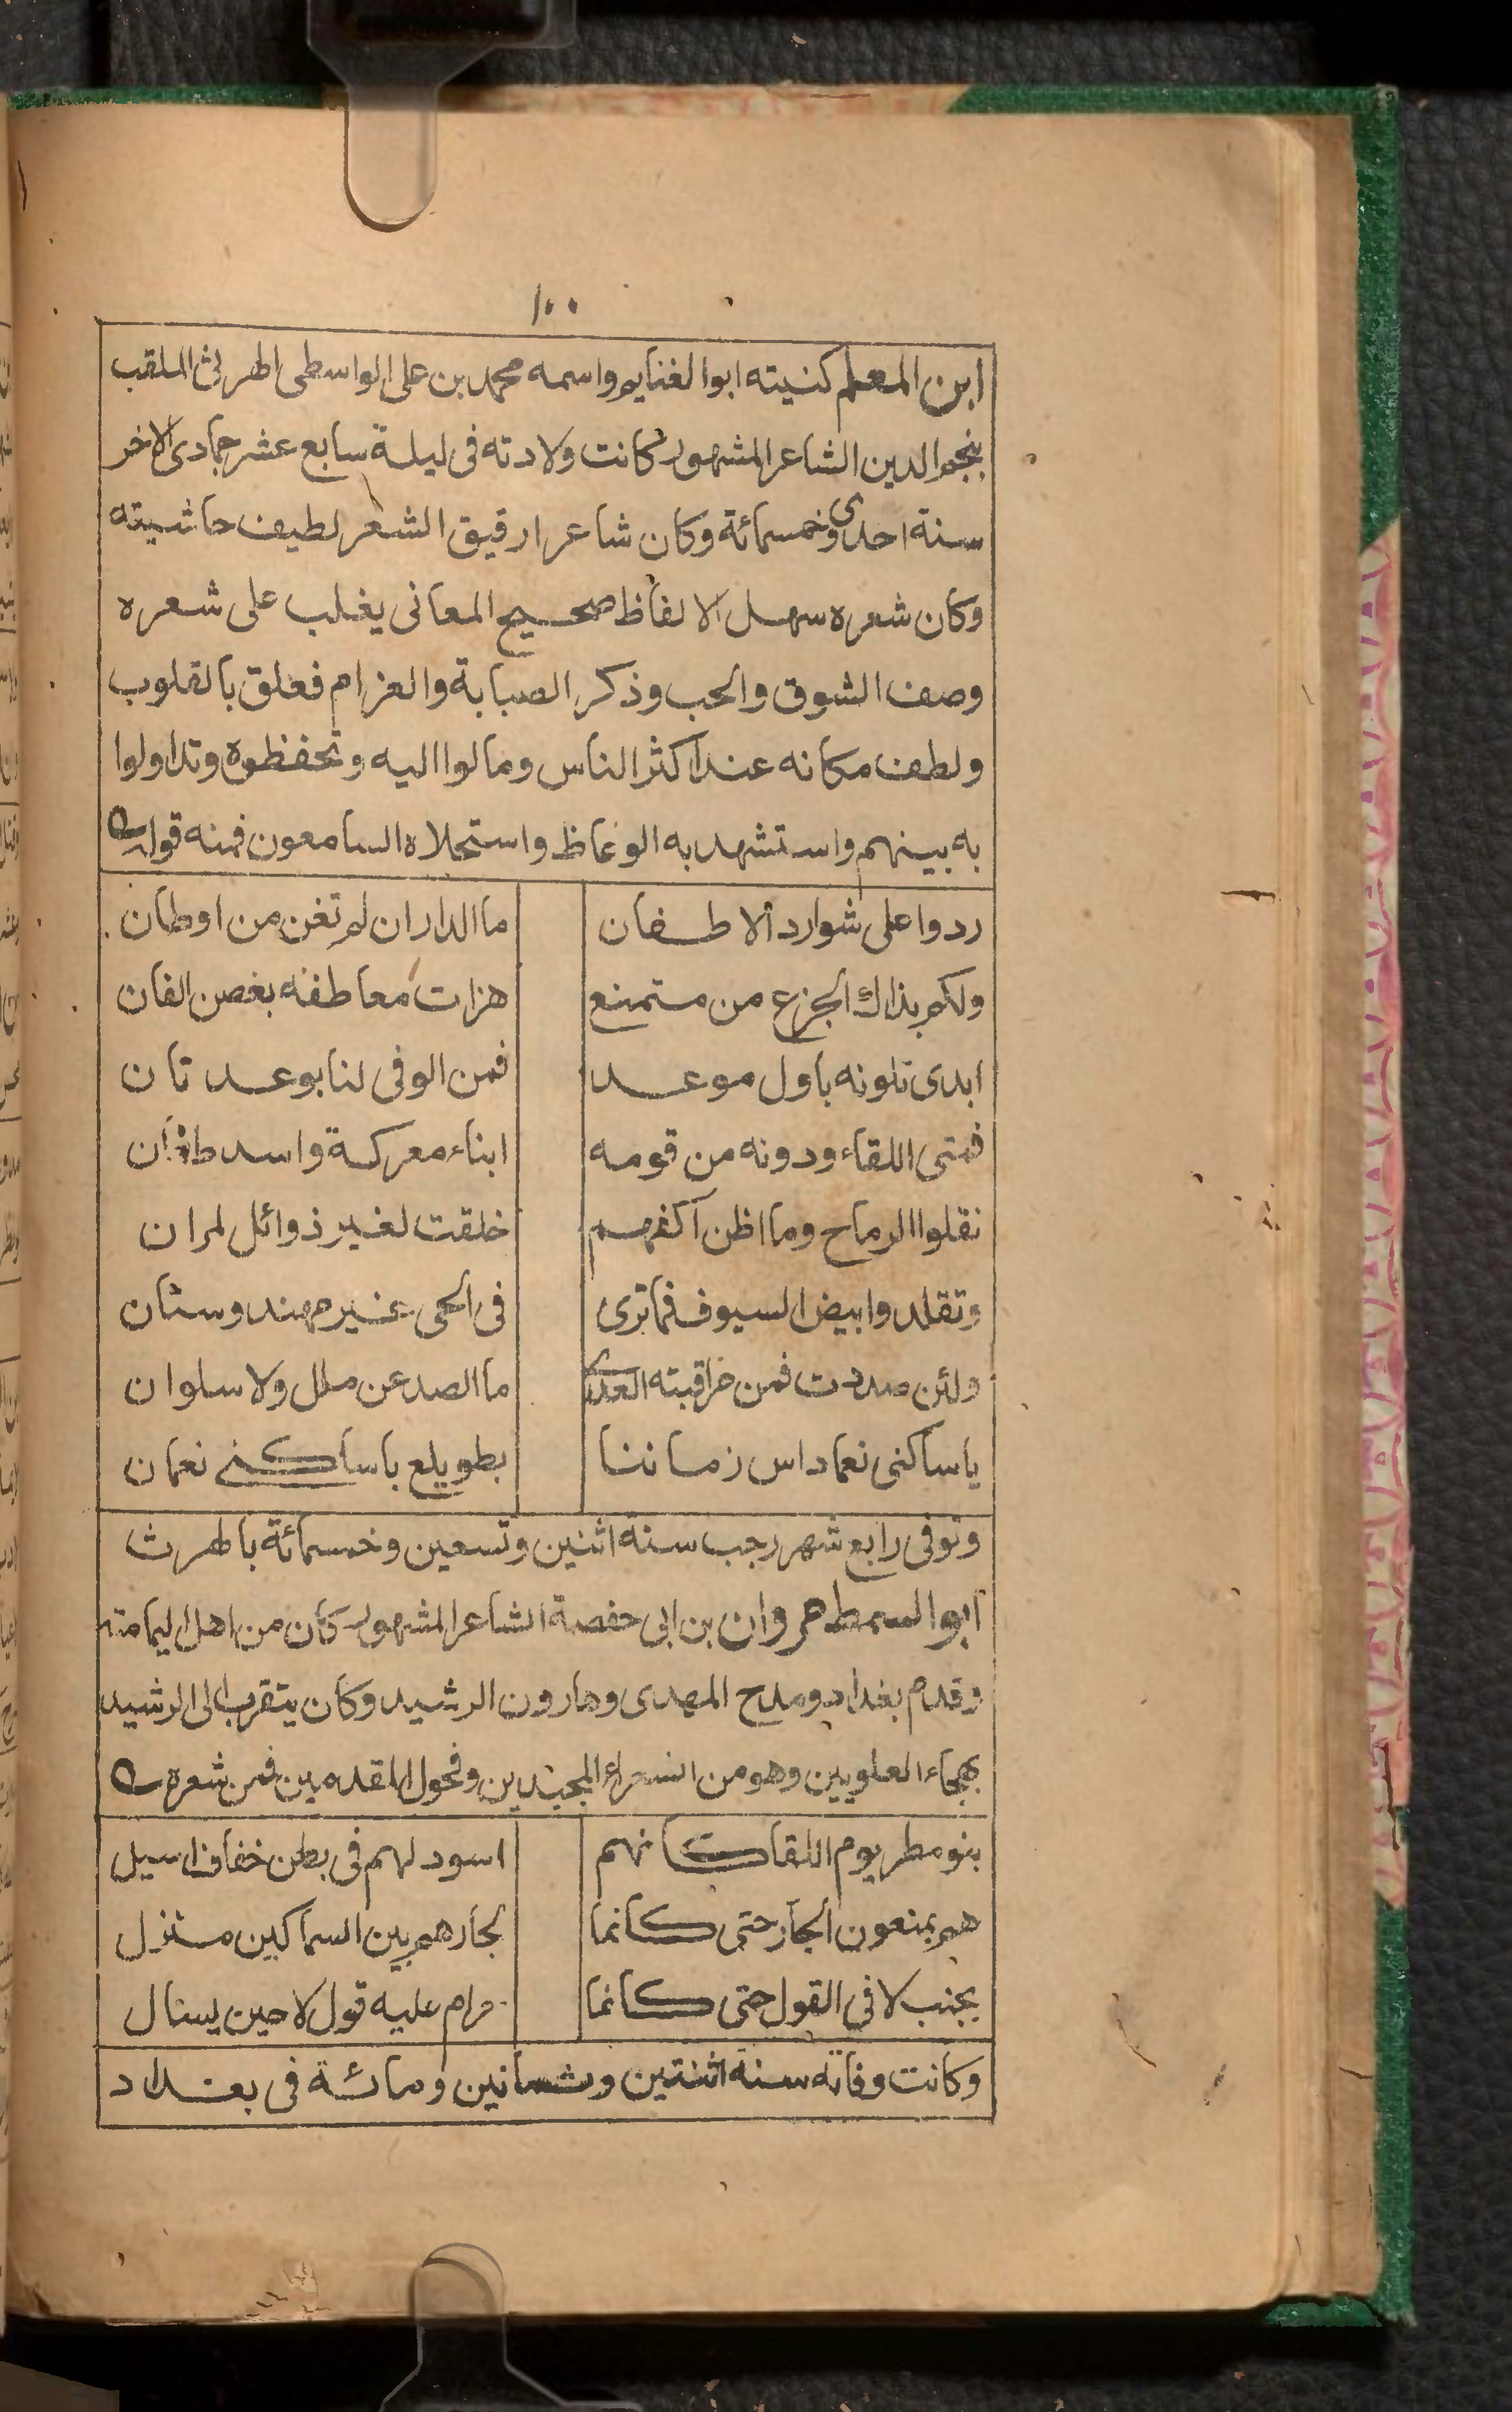 ١٠٠
ابن المعلم كنيته ابوالغنايم واسمه محمد بن على الواسطى اطهرلث الملقب
بنجم الدين الشاعر المشهور كانت ولادته فى ليلة سابع عشر جمادى الاخر
سنة احدى وخمسمائة وكان شاعرا رقيق الشعر لطيف حاشيته
وكان شعره سهل الالفاظ صحيح المعانى يغلب على شعره
وصف الشوق والحب وذكر الصبابة والغرام فعلق بالقلوب
ولطف مكانه عند اكثر الناس ومالوا اليه وتحفظوه وتداولوا
به بينهم واستشهد به الوعاظ واستحلاه السامعون فمنه قوله
ردوا على شوارد الاظعان ما الدار ان لم تغن من اوطان
ولكم بذاك الجزع من متمنع هزات معاطفه بغصن الفان
ابدى تلونه باول موعد فمن الوفى لنا بوعد تان
فمتى اللقاء ودونه من قومه ابناء معركة واسد طان
نقلوا الرماح وما اظن اكفهم خلقت لغير ذوائل لمران
وتقلدوا بيض السيوف فما ترى فى الحى غير مهند وسنان
ولئن صددت فمن مراقبته العدى ما الصد عن ملل ولا سلوان
ياساكنى نعماد اس زماننا بطويلع ياساكنى نعمان
وتوفى رابع شهر رجب سنة اثنين وتسعين وخمسمائة باطهرث
ابوالسمط مروان بن ابى حفصة الشاعر المشهور كان من اهل اليمامته
وقدم بغداد ومدح المهدى وهارون الرشيد وكان يتقرب الى الرشيد
بهجاء العلويين وهو من الشعراء المجيدين وفحول المقدمين فمن شعره
بنو مطر يوم اللقا كانهم اسود لهم فى بطن خفان اسبل
هم يمنعون الجار حتى كانما لجارهم بين السماكين منزل
يجنب لا فى القول حتى كانما حرام عليه قول لا حين يسال
وكانت وفاته سنة اثنتين وثمانين ومائة فى بغداد